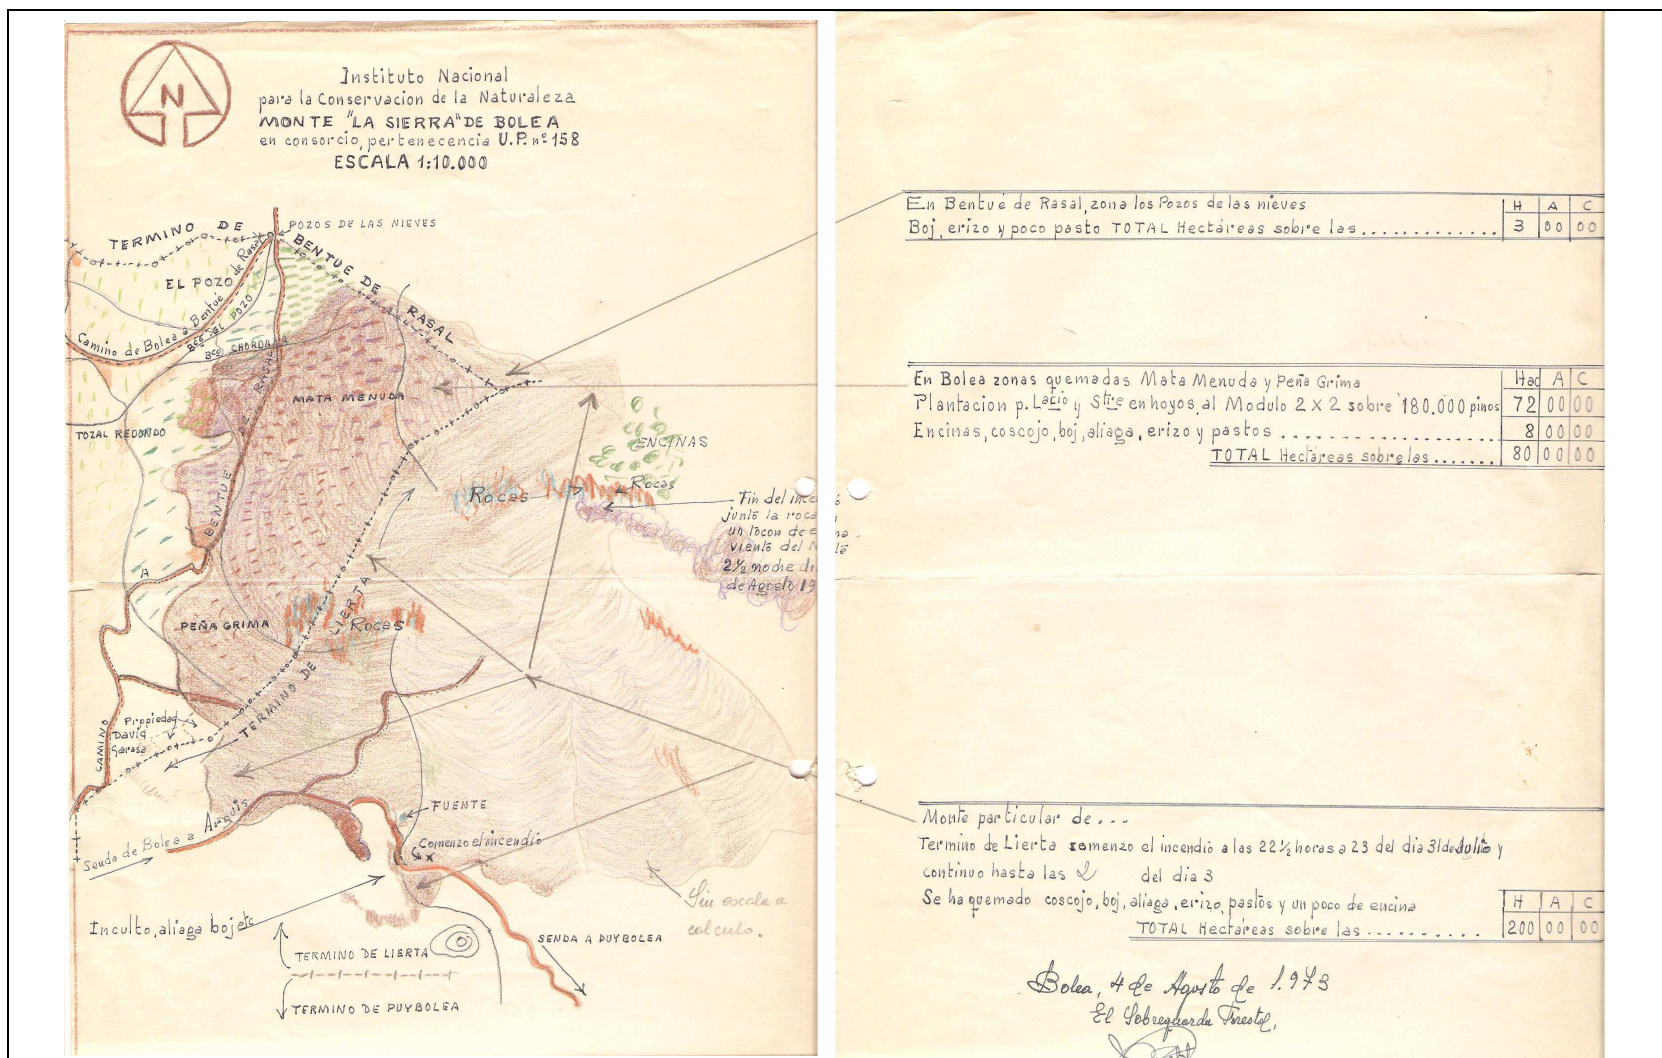 N
Instituto Nacional
para la Conservacion de la Naturaleza
MONTE "LA SIERRA" DE BOLEA
en consorcio, pertenecencia U.P. nº 158
ESCALA 1:10.000
POZOS DE LAS NIEVES
TERMINO DE
BENTUE DE RASAL
EL POZO
Camino de Bolea a Bentué de Rasal
Bco del POZO
Bco CHORDANA
MATA MENUDA
TOZAL REDONDO
BENTUE DE RASAL
ENCINAS
Rocas
Rocas
Fin del ince
junto la roca
un tocon de e
viento del N
2½ noche di
de Agosto 19
A
PEÑA GRIMA
Rocas
TERMINO DE LIERTA
Propiedad
David
Garasa
CAMINO
Senda de Bolea a Arguis
FUENTE
Comenzo el incendio
Sin escala a
calculo.
Inculto, aliaga boj etc
TERMINO DE LIERTA
TERMINO DE PUYBOLEA
SENDA A PUYBOLEA
En Bentué de Rasal, zona los Pozos de las nieves H A C
Boj, erizo y poco pasto TOTAL Hectáreas sobre las ............. 3 00 00
En Bolea zonas quemadas Mata Menuda y Peña Grima Had A C
Plantacion p. Lacio y Stre en hoyos, al Modulo 2 X 2 sobre 180.000 pinos 72 00 00
Encinas, coscojo, boj, aliaga, erizo y pastos .................... 8 00 00
TOTAL Hectáreas sobre las ....... 80 00 00
Monte particular de ...
Termino de Lierta comenzo el incendio a las 22 ½ horas a 23 del dia 31 de Julio y
continuo hasta las 2 del dia 3
Se ha quemado coscojo, boj, aliaga, erizo, pastos y un poco de encina H A C
TOTAL Hectáreas sobre las .......... 200 00 00
Bolea, 4 de Agosto de 1.973
El Sobreguarda Forestal,